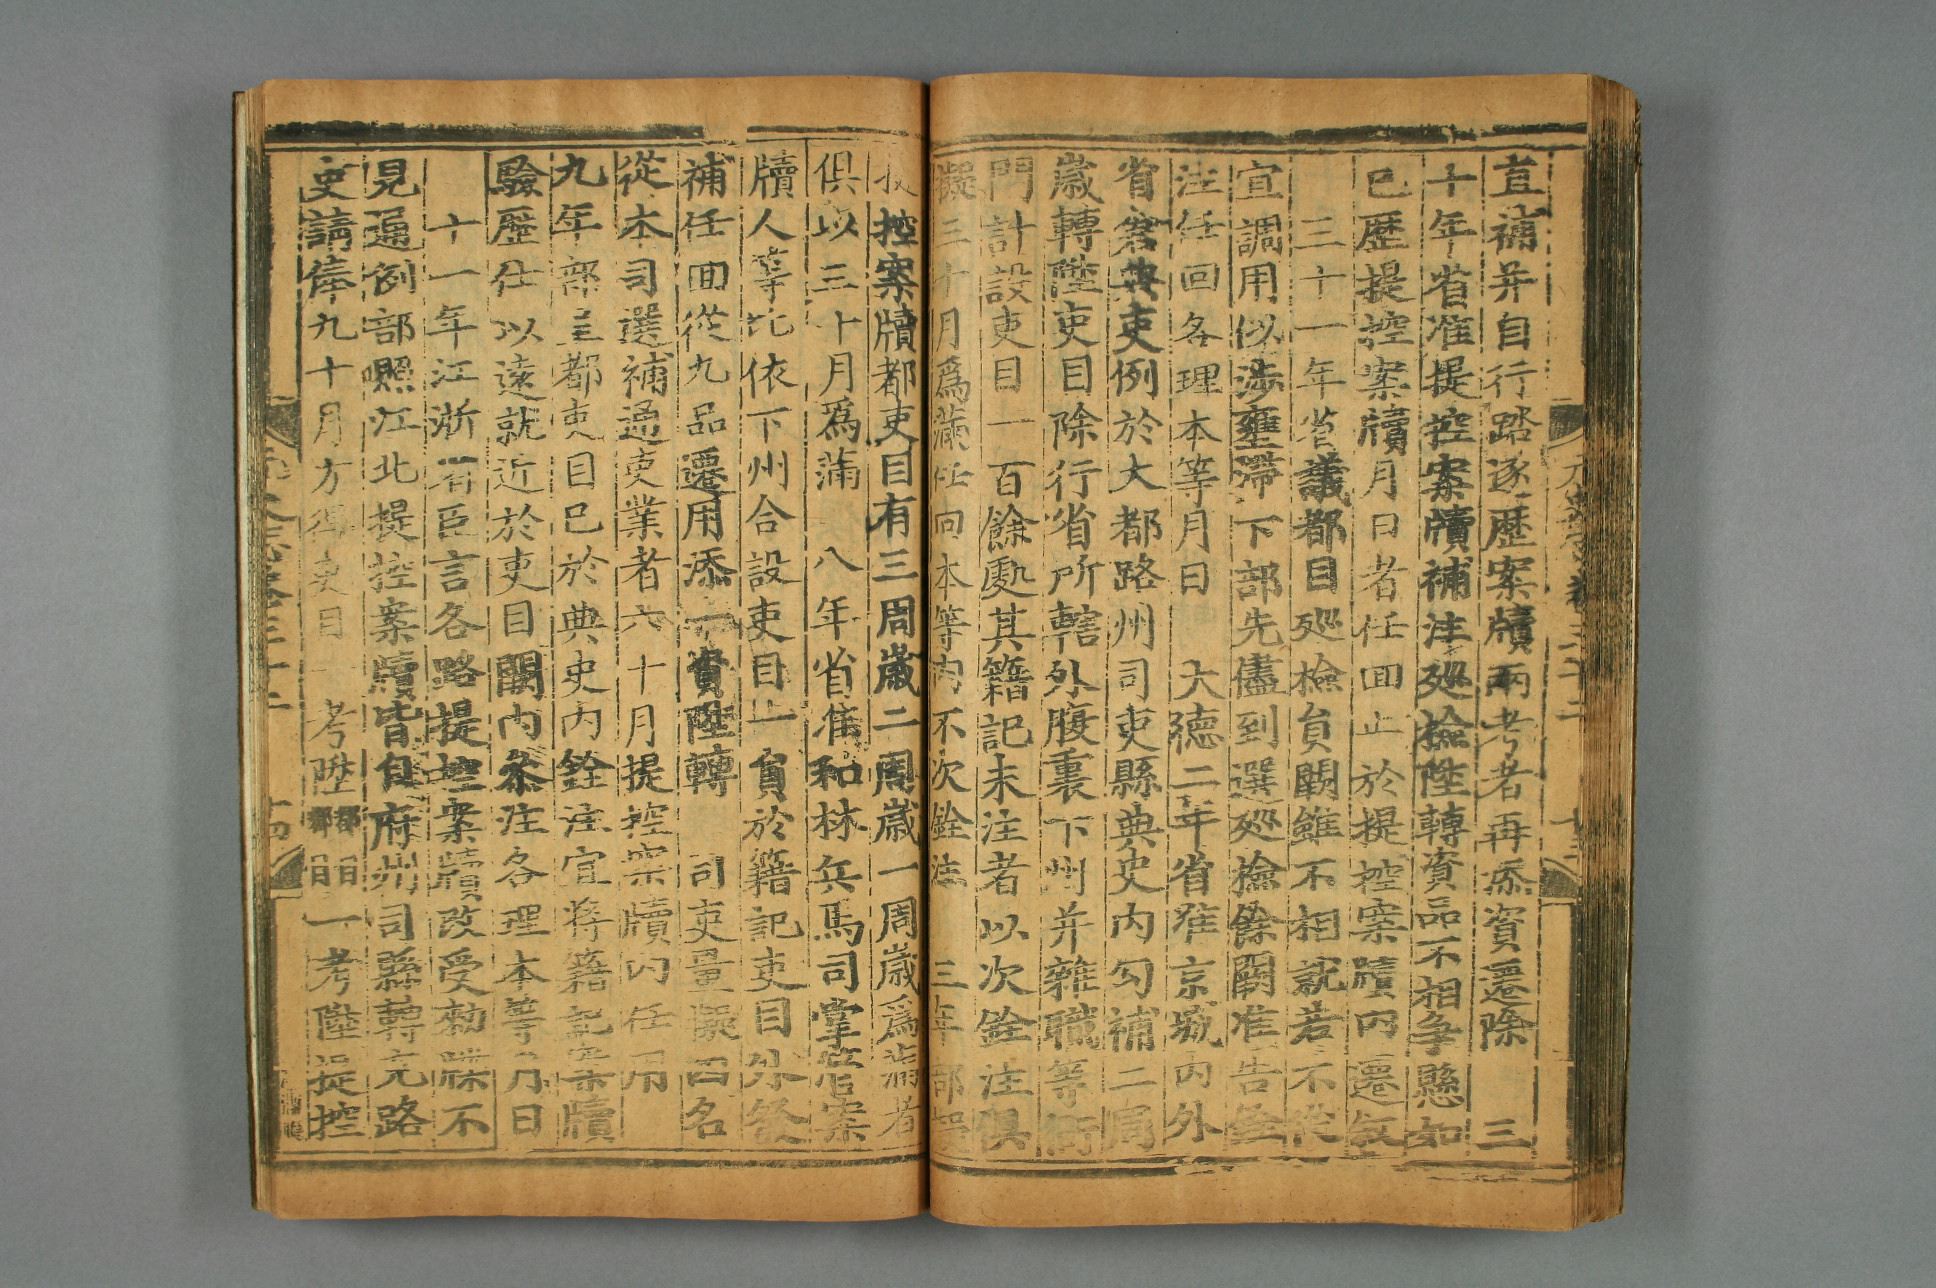 直補并自行踏逐歷案牘兩考者再添資遷除　三
十年省准提控案牘補注廵檢陞轉資品不相争懸如
已歷提控案牘月日者任回止於提控案牘內遷叙
三十一年省議都目廵檢貟闕雖不相就若不從
宜調用似涉壅滯下部先儘到選廵檢餘闕准告銓
注任回各理本等月日　大德二年省准京城內外
省寘典吏例於大都路州司吏縣典史內勾補二周
歲轉陞吏目除行省所轄外腹裏下州并雜職等衙
門計設吏目一百餘處其籍記未注者以次銓注俱
擬三十月爲滿任回本等內不次銓注　三年部擬
提控案牘都吏目有三周歲二周歲一周歲爲滿者
俱以三十月爲滿　八年省准和林兵馬司掌管案
牘人等比依下州合設吏目一貟於籍記吏目外發
補任回從九品遷用添一資陞轉　司吏量擬四名
從本司選補通吏業者六十月提控案牘內任用
九年部呈都吏目已於典吏內銓注宜將籍記案牘
驗歷仕以遠就近於吏目闕內叅注各理本等月日
十一年江浙省臣言各路提控案牘改受勑牒不
見通例部照江北提控案牘皆自府州司縣轉充路
吏請俸九十月方得吏目一考陞都目都目一考陞提控
元史志卷三十二
十三
元史志卷三十二
十四